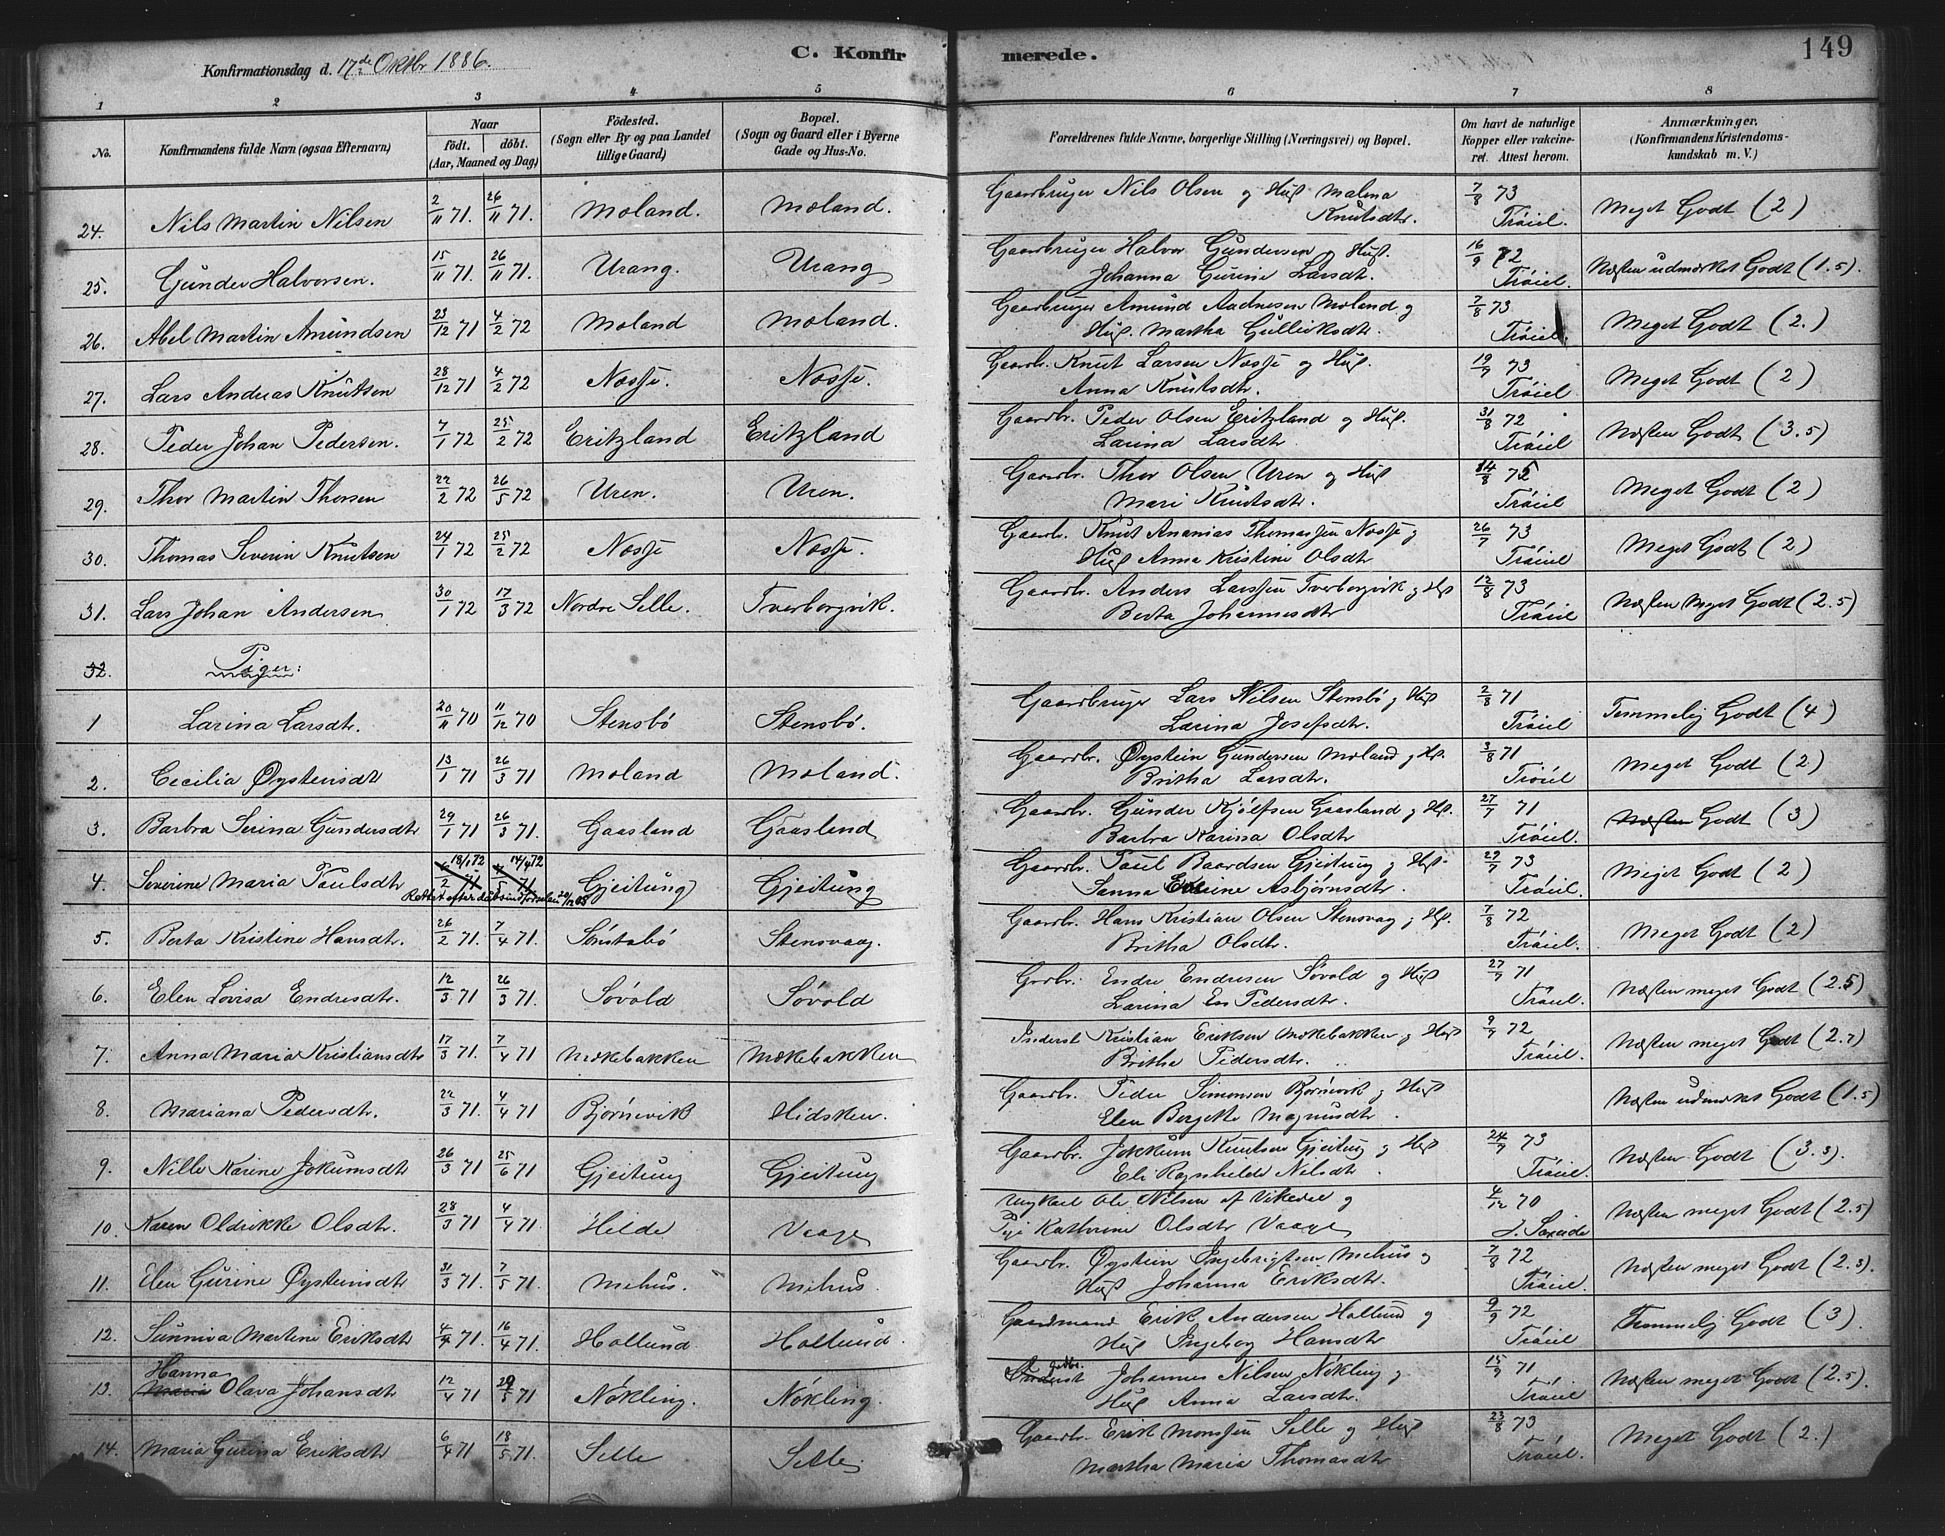 Konfirmationsdag d. 17de Oktbr 1886.
C. Konfirmerede.
149
1 2 3 4 5 6 7 8
No.
Konfirmandens fulde Navn (ogsaa Efternavn)
Naar
født. døbt.
(Aar, Maaned og Dag)
Fødested.
(Sogn eller By og paa Landet
tillige Gaard)
Bopæl.
(Sogn og Gaard eller i Byerne
Gade og Hus-No.
Forældrenes fulde Navne, borgerlige Stilling (Næringsvei) og Bopæl.
Om havt de naturlige
Kopper eller vakcine-
ret. Attest herom.
Anmærkninger.
(Konfirmandens Kristendoms-
kundskab m. V.)
24. Nils Martin Nilsen 2/11 71. 26/11 71. Moland. Moland. Gaardbruger Nils Olsen og Hus Malena
Knutsdtr. 7/8 73 Trøiel. Meget Godt (2)
25. Gunder Halvorsen. 15/11 71. 26/11 71. Urang. Urang Gaardbruger Halvor Gundersen og Hus.
Johanna Gurine Larsdtr. 16/9 72 Trøiel. Næsten udmærket Godt (1.5).
26. Abel Martin Amundsen 23/12 71 4/2 72 Moland Moland. Gaardbruger Amund Aadnesen Moland og
Hus. Martha Gulleiksdtr. 7/8 73 Trøiel. Meget Godt (2.)
27. Lars Andreas Knutsen 28/12 71 4/2 72 Næsse. Næsse. Gaardbr. Knut Larsen Næsse og Hus.
Anna Knutsdtr. 19/7 73 Trøiel. Meget Godt (2)
28. Peder Johan Pedersen. 7/1 72 25/2 72 Eritzland Eritzland Gaardbr. Peder Olsen Eritzland og Hus.
Larina Larsdtr. 31/8 72 Trøiel Næsten Godt (3.5)
29. Thor Martin Thorsen 22/2 72 26/5 72 Uren. Uren. Gaardbr. Thor Olsen Uren og Hus
Mari Knutsdtr. 14/8 75 Trøiel Meget Godt (2)
30. Thomas Severin Knutsen 24/1 72 25/2 72 Næsse Næsse. Gaardbr. Knut Ananias Thomassen Næsse og
Hus Anna Kristine Olsdtr 26/7 73 Trøiel Meget Godt (2)
31. Lars Johan Andersen 30/1 72 17/3 72 Nordre Selle. Tverborgvik. Gaardbr. Anders Larssen Tverborgvik og Hus
Berta Johannesdtr 12/8 73 Trøiel. Næsten Meget Godt (2.5)
32. Piger:
1 Larina Larsdtr. 20/11 70 11/12 70 Stensbø Stensbø. Gaardbruger Lars Nilsen Stensbø og Hus
Larina Josefsdtr. 2/8 71 Trøiel Temmelig Godt (4)
2. Cecilia Øystensdtr 13/1 71 26/3 71. Moland Moland. Gaardbr. Øystein Gundersen Moland og Hus.
Britha Larsdtr. 3/8 71 Trøiel Meget Godt (2)
3. Barbra Serina Gundersdtr 29/1 71 26/3 71. Gaasland Gaasland Gaardbr. Gunder Kjølfsen Gaasland og Hus.
Barbra Karina Olsdtr 27/7 71 Trøiel. Næsten Godt (3)
4. Severine Maria Paulsdtr 18/1 72 14/4 72 Gjeitung Gjeitung Gaardbr. Paul Baardsen Gjeitung og Hus.
Rettet efter daabsindførselen
Sanna Asbjørnsdtr. 29/7 73 Trøiel. Meget Godt (2)
5. Berta Kristine Hansdtr. 26/2 71. 7/4 71. Sønstabø Stensvaag. Gaardbr. Hans Kristian Olsen Stensvag og Hus.
Britha Olsdtr. 7/8 72 Trøiel. Meget Godt (2)
6. Elen Lovisa Endresdtr. 12/3 71 26/3 71. Søvold Søvold Grdbr. Endre Endresen Søvold og Hus
Larina En Pedersdtr. 27/7 71 Trøiel. Næsten meget Godt (2.5)
7. Anna Maria Kristiansdtr 17/3 71. 7/4 71 Mækebakken Mækebakken Inderst Kristian Eriksen Mækebakken og Hus
Britha Pedersdtr. 9/7 72 Trøiel. Næsten meget Godt (2.7)
8. Mariana Pedersdtr. 22/3 71. 4/4 71 Bjørnevik Hidsken. Gaardbr. Peder Simonsen Bjørnevik og Hus
Elen Bergette Magnusdtr Næsten udmærket Godt (1.5)
9. Nille Karine Jokumsdtr 26/3 71 25/6 71 Gjeitung Gjeitung Gaardbr. Jokkum Knutsen Gjeitung og Hus
Eli Ragnhilde Nilsdtr 24/7 73 Trøiel. Næsten Godt (3.3).
10. Karen Oldrikke Olsdtr. 28/3 71 4/4 71. Hilde Vaage Ungkarl Ole Nilsen af Vikedal og
Pige Kathrine Olsdtr Vaage 4/12 70 Næsten meget Godt (2.5)
11. Elen Gurine Øysteinsdtr 31/3 71. 7/5 71. Mehus. Mehus. Gaardbr. Øystein Ingebrigtsen Mehus og
Hus Johanna Eriksdtr. 7/8 72 Trøiel. Næsten meget Godt (2.3)
12. Sunniva Martine Eriksdtr 4/4 71. 16/4 71. Hollund Hollund Gaardmand Erik Andersen Hollund og
Hus Ingeborg Hansdtr 9/9 72 Trøiel Temmelig Godt (3)
Hanna
13. Maria Olava Johansdtr 12/4 71 29/5 71 Nøkling. Nøkling. Johannes Nilsen Nøkling og
Hus Anna Larsdtr. 15/9 71 Trøiel Næsten meget Godt (2.5).
14. Maria Gurina Eriksdtr 6/4 71 18/5 71. Selle Selle Gaardbr. Erik Monssen Selle og Hus
Martha Maria Thomasdtr 23/8 73 Trøiel. Meget Godt (2.)